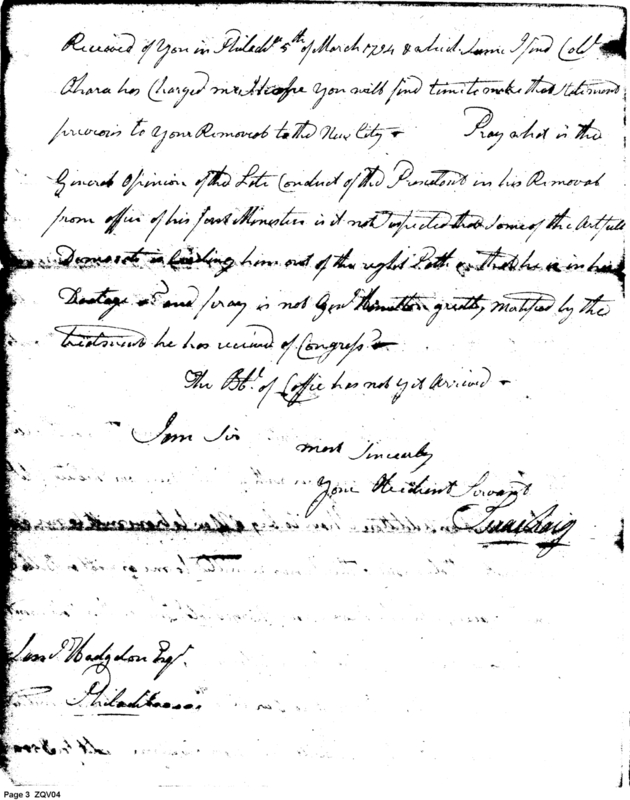 Received of You in Philada. 5th of March 1794 & which Sum I find Colo.
Ohara has Charged me. I hope you will find time to make that Statement
previous to Your Removal to the New City - Pray what is the
General Opinion of the Late Conduct of the President in his Removal
from office of his first Minister is it not Suspected that Some of the Artfull
Democrats is leading him out of the right Path or that he is in his
Doatage &c. and pray is not Genl. Hamilton greatly Mortified by the
treatment he has received of Congress -
The Bbl. of Coffie has not yet Arrived -
I am Sir
most Sincerely
Your Obedient Servant
Isaac Craig
Saml. Hodgdon Esqr.
Philadelphia
Page 3 ZQV04